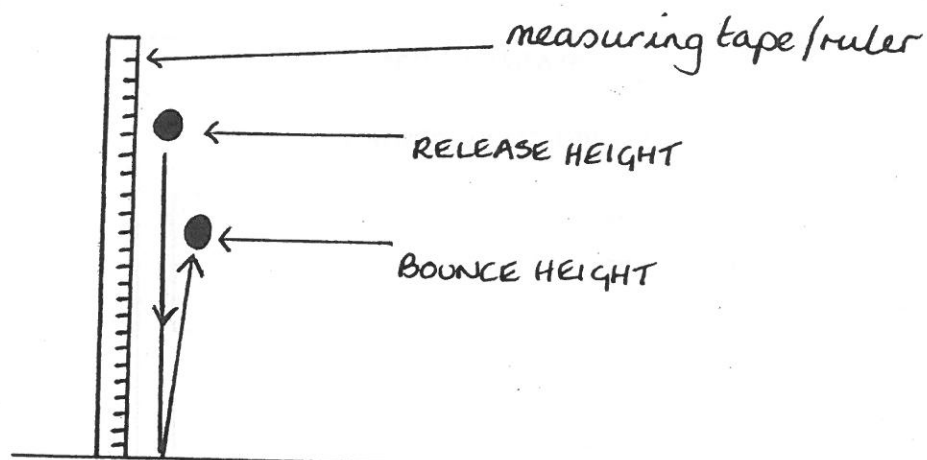 measuring tape/ruler
RELEASE HEIGHT
BOUNCE HEIGHT